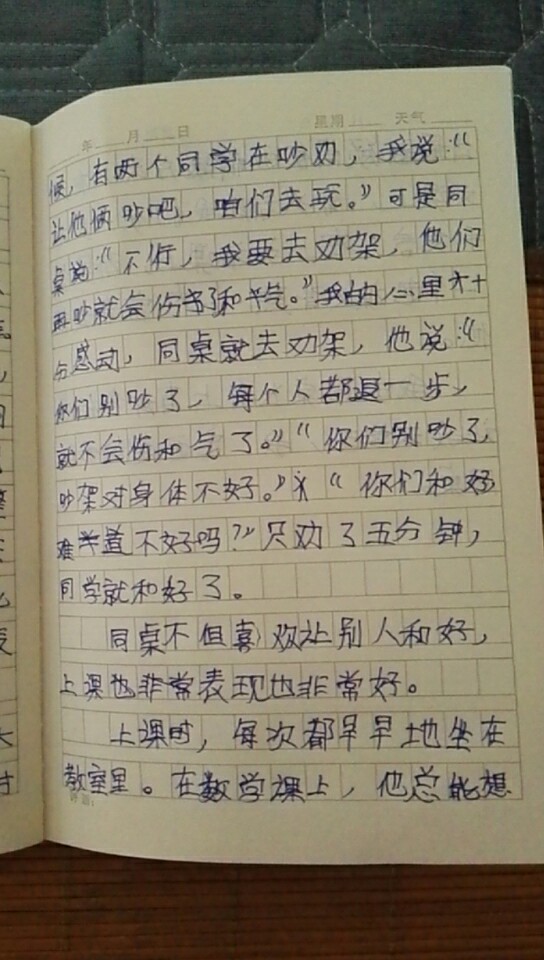 年 月 日 星期 天气
候，有两个同学在吵劝，我说：“
让他俩吵吧，咱们去玩。”可是同
桌说：“不行，我要去劝架，他们
再吵就会伤和气。”我的心里十
分感动，同桌就去劝架，他说：“
你们别吵了，每个人都退一步，
就不会伤和气了。”“你们别吵了，
吵架对身体不好。”“你们和好
难道不好吗？”只劝了五分钟，
同学就和好了。
同桌不但喜欢让别人和好，
上课也非常表现也非常好。
上课时，每次都早早地坐在
教室里。在数学课上，他总能想